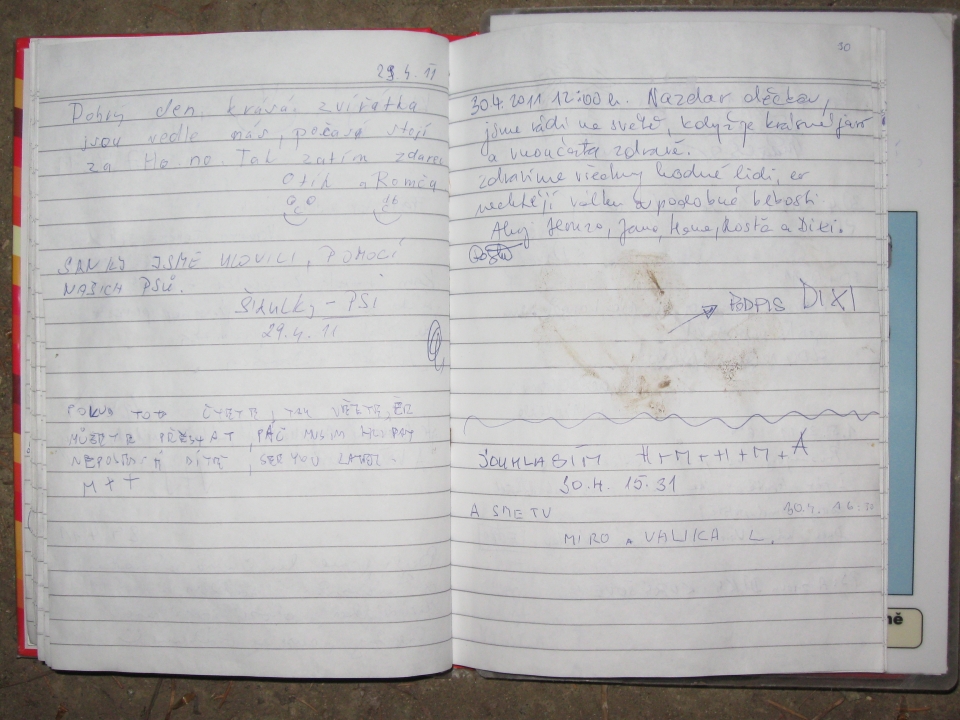 29.4. 11
Dobrý den, krásná zvířátka
jsou vedle nás, počasí stojí
za Ho no. Tak zatím zdarec
Otík a Romča
SANKY JSME ULOVILI, POMOCÍ
NAŠICH PSŮ.
ŠIKULKY - PSI
29.4. 11
POKUD TOTO ČTETE, TAK VĚZTE, ŽE
MŮŽETE PŘESTAT, PÁČ MUSÍM
M + T
10
30.4.2011 12:00 h. Nazdar
jsme rádi na světě, když je krásné jaro
a vnoučata zdravé.
zdravíme všechny hodné lidi, co
nechtějí válku a podobné blbosti
Ahoj Honza, Jana, Hana, Kosťa a Dixi.
PODPIS DIXI
SOUHLASÍM H+M+H+M+A
30.4. 15:31
A SME TU 30.4. 16:30
MIRO A VALIKA L.
ně